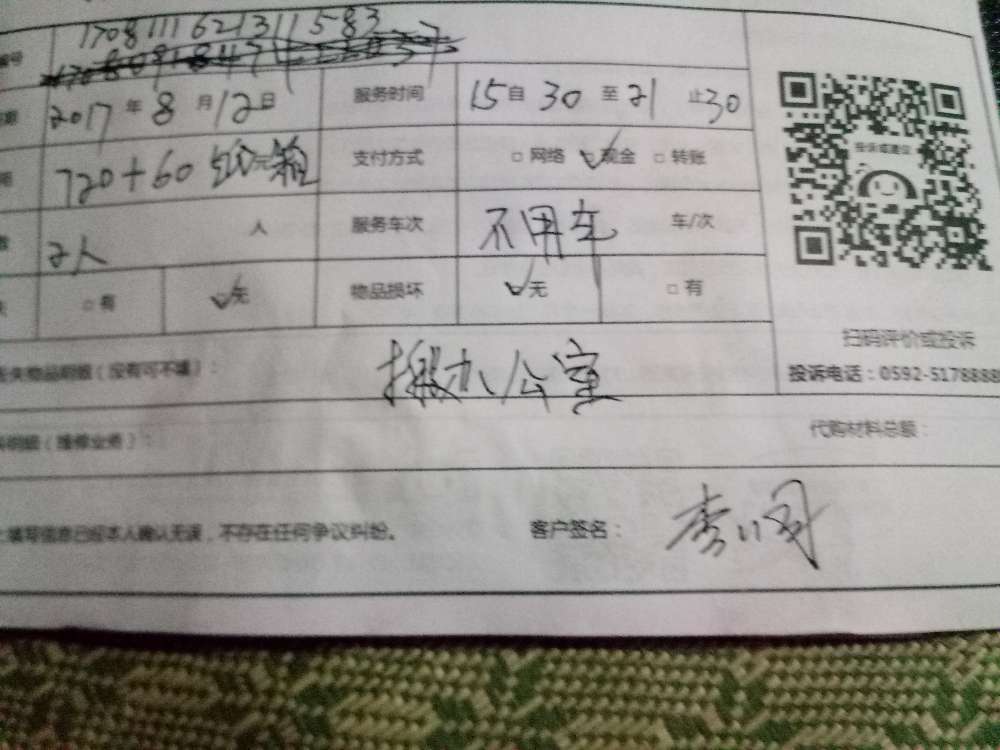 编号 1708111621311583
2017年8月12日 服务时间 15自30至21止30
720+60 支付方式 □网络 ✓现金 □转账
投诉或建议
2人 人 服务车次 不用车 车/次
□有 ✓无 物品损坏 ✓无 □有
扫码评价或投诉
丢失物品明细（没有可不填）： 搬办公室
投诉电话：0592-5178888
明细（维修业务）： 代购材料总额：
填写信息已经本人确认无误，不存在任何争议纠纷。 客户签名： 李